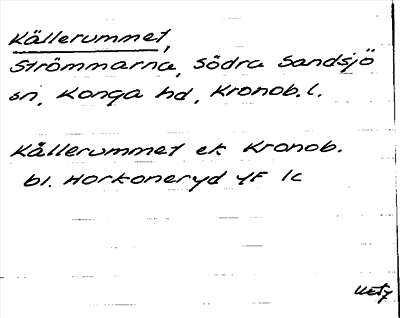 Källerummet,
Strömmarna, Södra Sandsjö
sn, Konga hd, Kronob. l.
Källerummet ek Kronob.
bl. Horkoneryd YF 1c